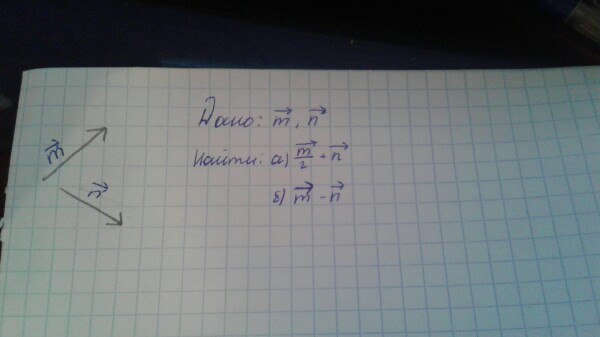 m⃗
n⃗
Дано: m⃗, n⃗
Найти: а) m⃗/2 + n⃗
б) m⃗ - n⃗